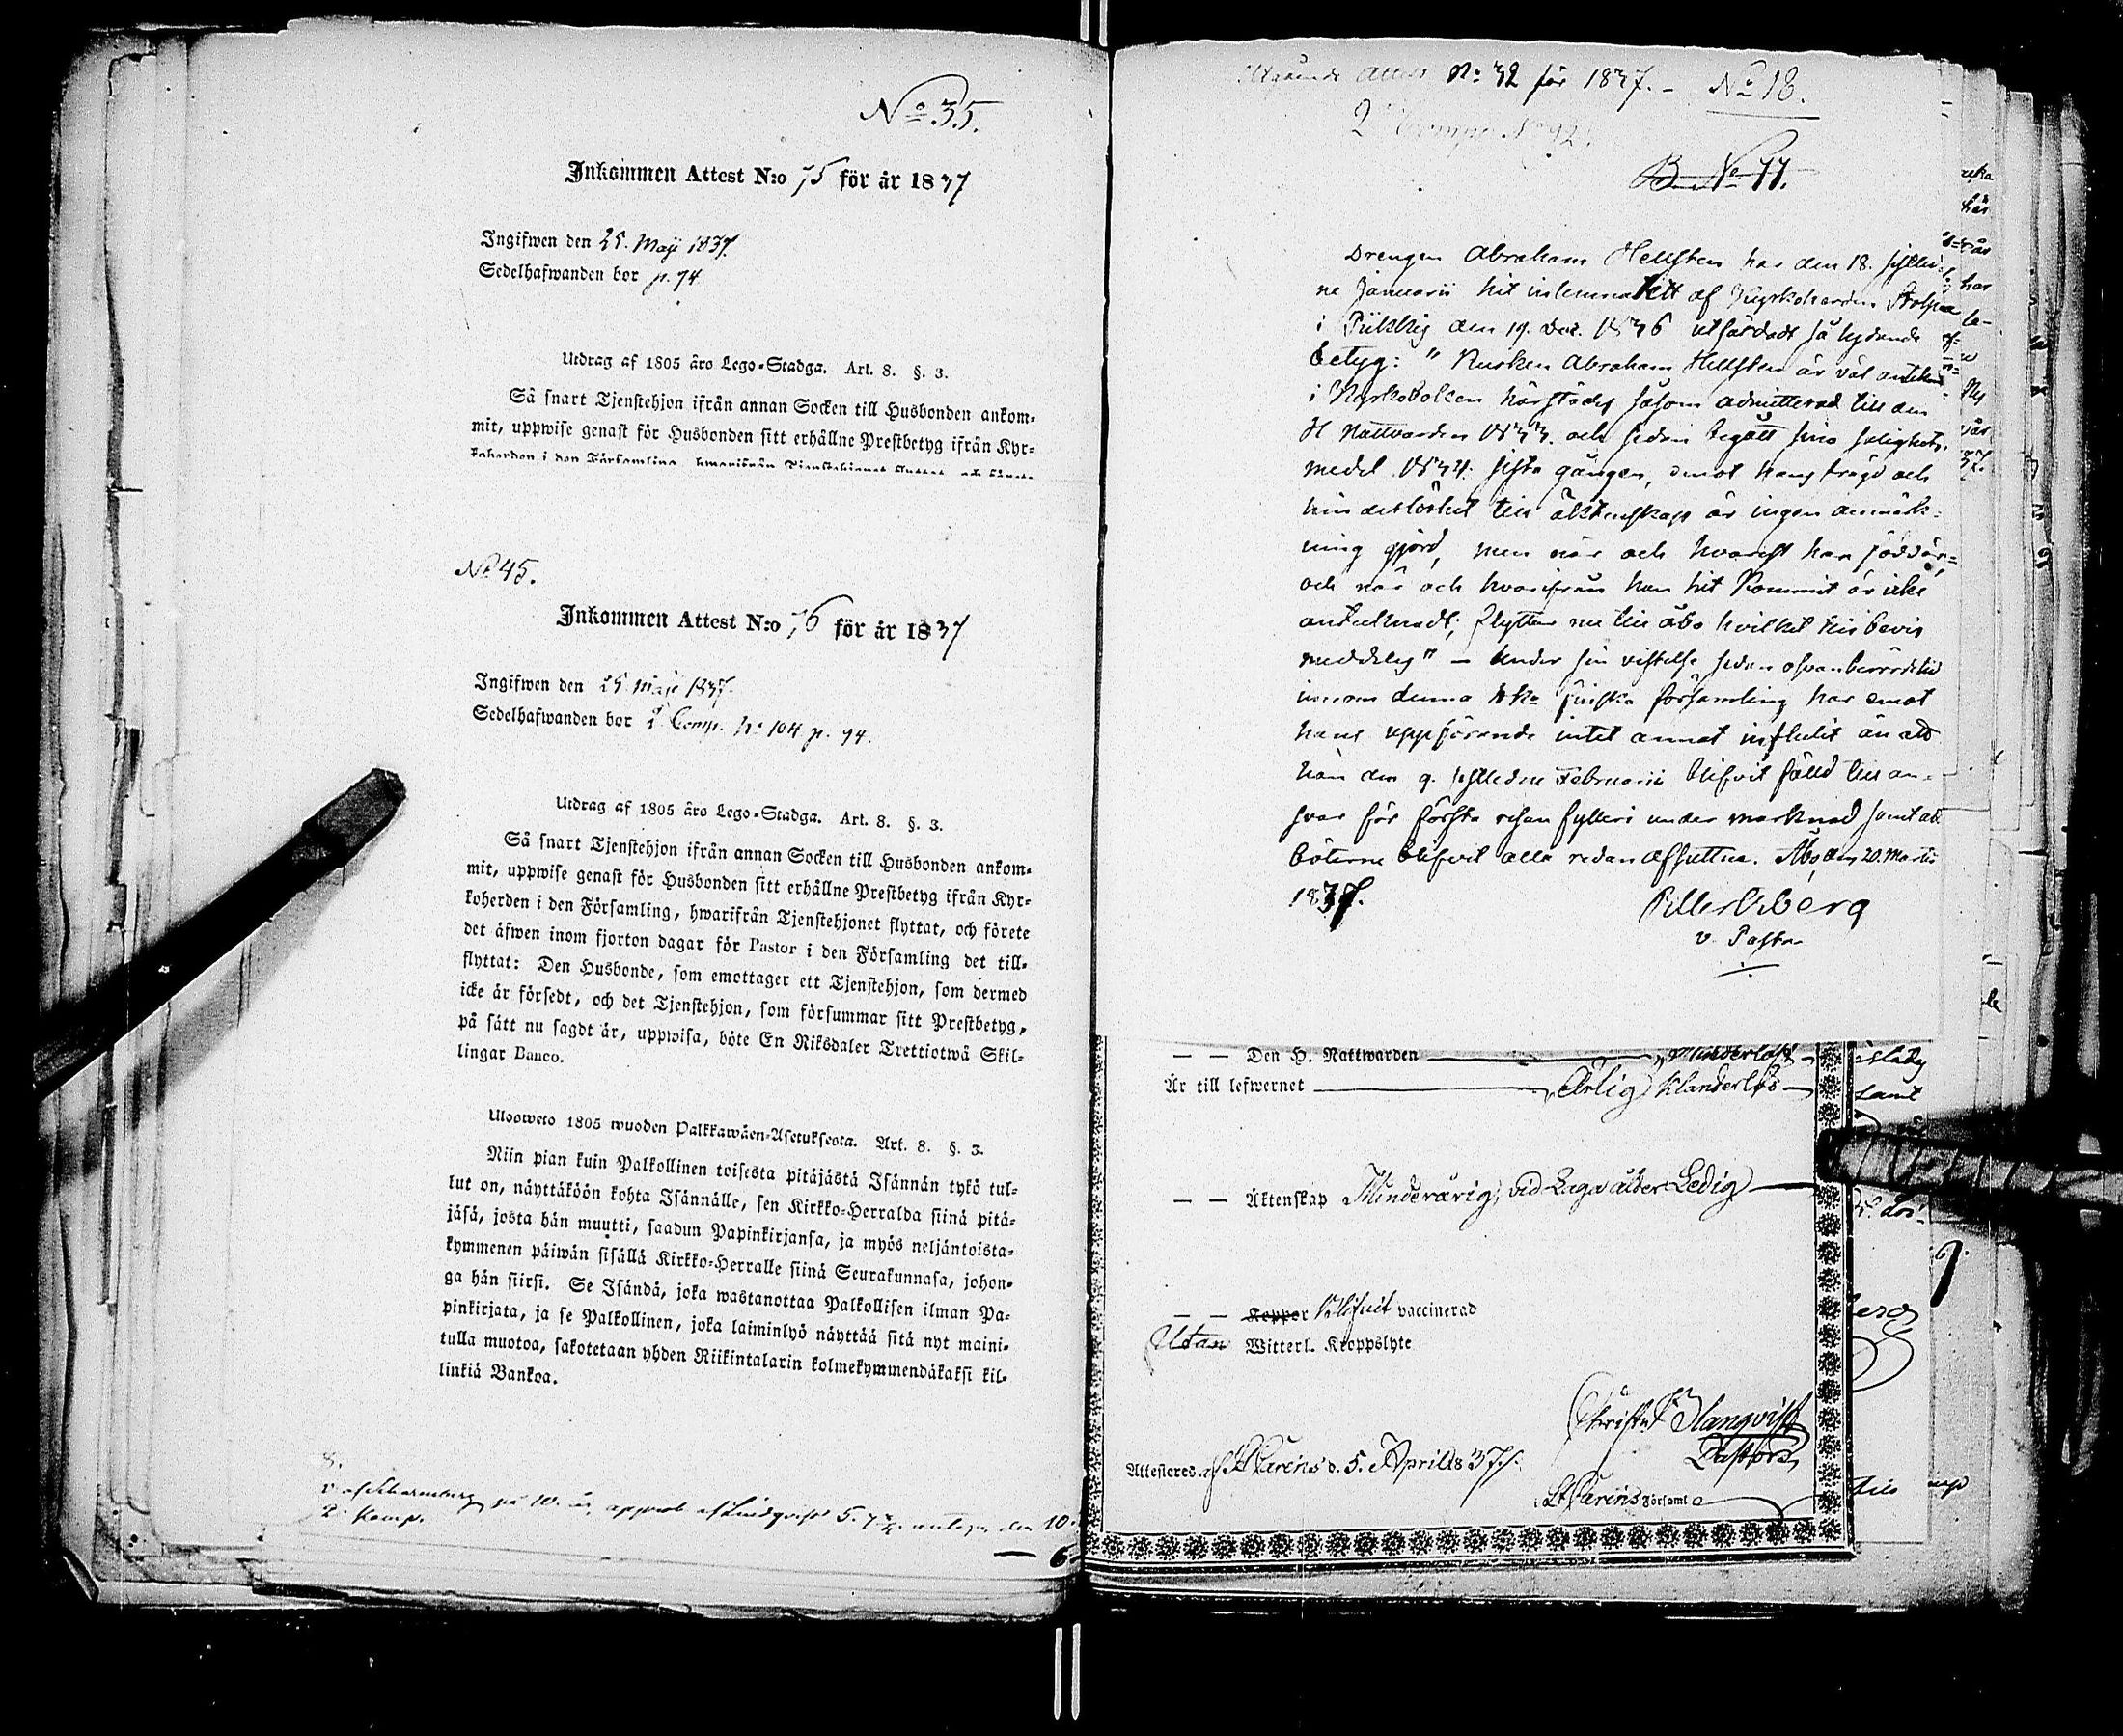 No 35.
Inkommen Attest N:o 75 för år 1837
Ingifwen den 25. Maji 1837.
Sedelhafwanden bor p. 74
Utdrag af 1805 års Lego-Stadga. Art. 8. §. 3.
Så snart Tjenstehjon ifrån annan Socken till Husbonden ankom-
mit, uppwise genast för Husbonden sitt erhållne Prestbetyg ifrån Kyr-
koherden i den Församling, hwarifrån Tjenstehjonet flyttat, och förete
No 45.
Inkommen Attest N:o 76 för år 1837
Ingifwen den 25 Maji 1837.
Sedelhafwanden bor 2 Comp. No 104 p. 94.
Utdrag af 1805 års Lego-Stadga. Art. 8. §. 3.
Så snart Tjenstehjon ifrån annan Socken till Husbonden ankom-
mit, uppwise genast för Husbonden sitt erhållne Prestbetyg ifrån Kyr-
koherden i den Församling, hwarifrån Tjenstehjonet flyttat, och förete
det äfwen inom fjorton dagar för Pastor i den Församling det till-
flyttat: Den Husbonde, som emottager ett Tjenstehjon, som dermed
icke är försedt, och det Tjenstehjon, som försummar sitt Prestbetyg,
på sätt nu sagdt är, uppwisa, böte En Riksdaler Trettiotwå Skil-
lingar Banco.
Ulosweto 1805 wuoden Palkkawäen-Asetuksesta. Art. 8. §. 3.
Niin pian kuin Palkollinen toisesta pitäjästä Isännän tykö tul-
lut on, näyttäköön kohta Isännälle, sen Kirkko-Herralda siinä pitä-
jäsä, josta hän muutti, saadun Papinkirjansa, ja myös neljäntoista-
kymmenen päiwän sisällä Kirkko-Herralle siinä Seurakunnasa, johon-
ga hän siirsi. Se Isändä, joka wastanottaa Palkollisen ilman Pa-
pinkirjata, ja se Palkollinen, joka laiminlyö näyttää sitä nyt maini-
tulla muotoa, sakotetaan yhden Riikintalarin kolmekymmendäkaksi kil-
linkiä Bankoa.
på 10. år, den 10.
2. Komp.
6
Utgående Attest No 32 för 1837. - No 18.
B No 11.
Drengen Abraham Hellsten har den 18. sistled-
ne Januarii hit inlemnat ett af Kyrkoherden Stolpe
i Piikkis den 19. Dec. 1836 utfärdadt så lydande
betyg: " Kusken Abraham Hellsten är väl anteknad
i Kyrkoboken härstädes såsom admitterad till den
H Nattvarden 1833. och sedan begått sina salighets-
medel 1834. sista gången, emot hans frägd och
hinderlöshet till äktenskap är ingen anmärk-
ning gjord, men när och hvarest han född är,
och när och hvarifrån han hit kommit är icke
antecknadt; flyttar nu till Åbo hvilket till bevis
meddelas" - Under sin vistelse sedan ofvanberörde tid
innom denna Finska församling har emot
hans uppförande intet annat influtit än att
han den 9. sistledne Februarii blifvit fälld till an-
svar för första resan fylleri under marknad samt att
böterne blifvit alla redan afsuttna. Åbo den 20. Martii
1837.
v. Pastor
Den H. Nattwarden
Är till lefwernet Ärlig, Klanderlös
Äktenskap Minderårig, vid Laga ålder Ledig
Koppor Blifvit vaccinerad
Utan Witterl. Kroppslyte
Pastor
Attesteras af St Karins d. 5. April 1837.
St Karins Församl